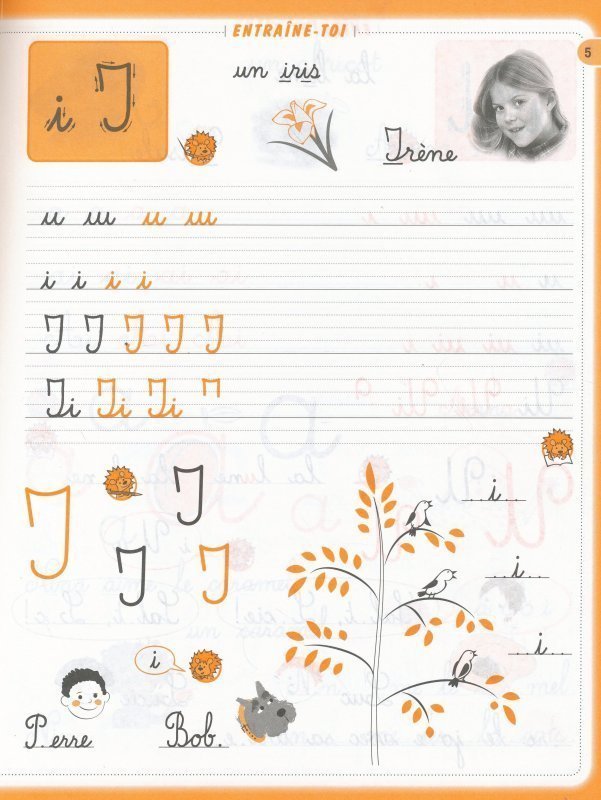 ENTRAÎNE-TOI
5
i I
un iris
Irène
i i i i
I I I I I
Ii Ii Ii
I I
I I
...i...
...i...
...i...
i
P.erre Bob.